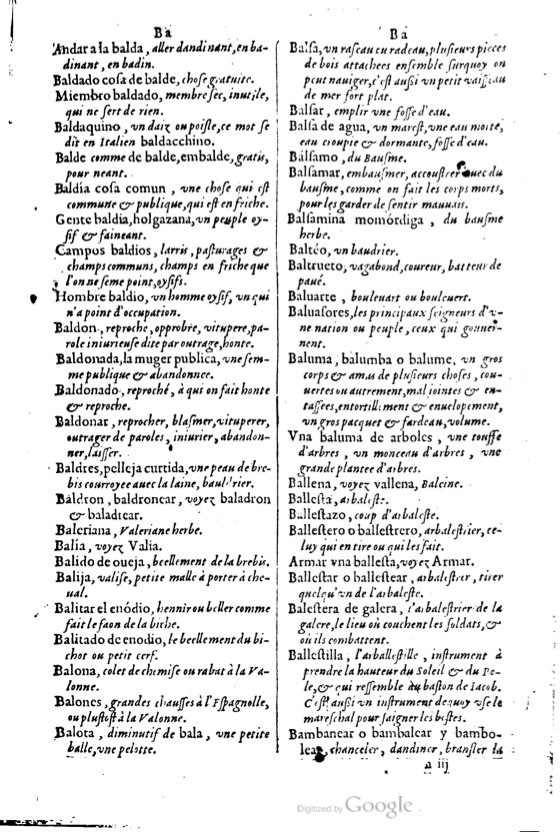 Ba
Andar a la balda, aller dandinant, en ba-
dinant, en badin.
Baldado cosa de balde, chose gratuite.
Miembro baldado, membre sec, inutile,
qui ne sert de rien.
Baldaquino, vn daiz ou poisle, ce mot se
dit en Italien baldacchino.
Balde comme de balde, embalde, gratis,
pour neant.
Baldia cosa comun, vne chose qui est
commune & publique, qui est en friche.
Gente baldia, holgazana, vn peuple oy-
sif & faineant.
Campos baldios, larris, pasturages &
champs communs, champs en friche que
l'on ne seme point, oysifs.
Hombre baldio, vn homme oysif, vn qui
n'a point d'occupation.
Baldon, reproche, opprobre, vitupere, pa-
role iniurieuse dite par outrage, honte.
Baldonada, la muger publica, vne fem-
me publique & abandonnee.
Baldonado, reproché, à qui on fait honte
& reproche.
Baldonar, reprocher, blasmer, vituperer,
outrager de paroles, iniurier, abandon-
ner, laisser.
Baldres, pelleja curtida, vne peau de bre-
bis courroyee auec la laine, baudrier.
Baldron, baldronear, voyez baladron
& baladrear.
Baleriana, Valeriane herbe.
Balia, voyez Valia.
Balido de oueja, beellement de la brebis.
Balija, valise, petite malle à porter à che-
ual.
Balitar el enodio, hennir ou beller comme
fait le faon de la biche.
Balitado de enodio, le beellement du bi-
chot ou petit cerf.
Balona, colet de chemise ou rabat à la Va-
lonne.
Balones, grandes chausses à l'Espagnolle,
ou plustost à la Valonne.
Balota, diminutif de bala, vne petite
balle, vne pelotte.
Ba
Balsa, vn raseau ou radeau, plusieurs pieces
de bois attachees ensemble surquoy on
peut nauiger, c'est aussi vn petit vaisseau
de mer fort plat.
Balsar, emplir vne fosse d'eau.
Balsa de agua, vn marest, vne eau morte,
eau croupie & dormante, fosse d'eau.
Balsamo, du Bausme.
Balsamar, embausmer, accoustrer auec du
bausme, comme on fait les corps morts,
pour les garder de sentir mauuais.
Balsamina momordiga, du bausme
herbe.
Balteo, vn baudrier.
Baltrueto, vagabond, coureur, batteur de
paué.
Baluarte, bouleuart ou bouleuert.
Baluasores, les principaux seigneurs d'v-
ne nation ou peuple, ceux qui gouuer-
nent.
Baluma, balumba o balume, vn gros
corps & amas de plusieurs choses, cou-
uertes ou autrement, mal iointes & en-
tassees, entortillement & enuelopement,
vn gros pacquet & fardeau, volume.
Vna baluma de arboles, vne touffe
d'arbres, vn monceau d'arbres, vne
grande plantee d'arbres.
Ballena, voyez vallena, Baleine.
Ballesta, arbaleste.
Ballestazo, coup d'arbaleste.
Ballestero o ballestrero, arbalestrier, ce-
luy qui en tire ou qui les fait.
Armar vna ballesta, voyez Armar.
Ballestar o ballestear, arbalestrer, tirer
quelqu'vn de l'arbaleste.
Balestera de galera, l'arbalestrier de la
galere, le lieu où couchent les soldats, &
où ils combattent.
Ballestilla, l'arballestille, instrument à
prendre la hauteur du Soleil & du Po-
le, & qui ressemble au baston de Iacob.
C'est aussi vn instrument dequoy vse le
mareschal pour saigner les bestes.
Bambancar o bambalear y bambo-
lear, chanceler, dandiner, bransler la
a iij
Digitized by Google